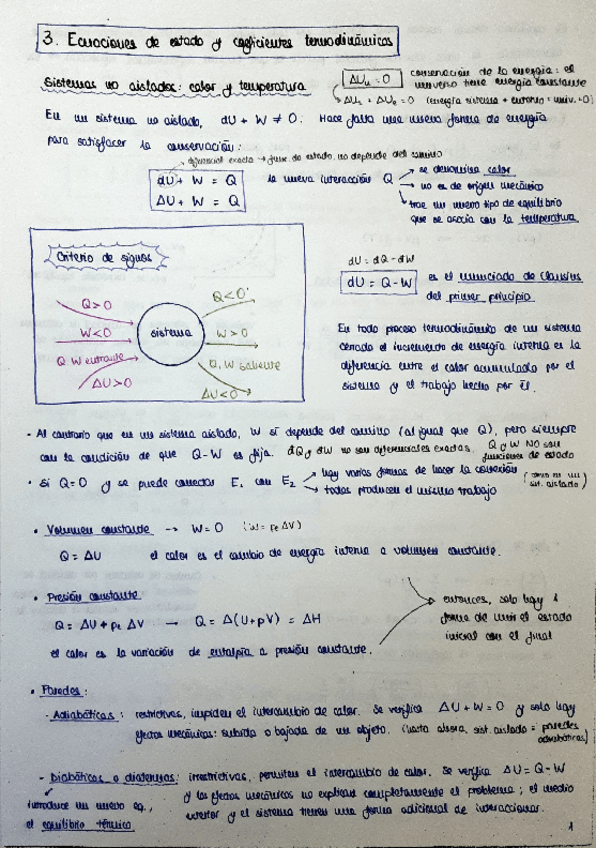 3. Ecuaciones de estado y coeficientes termodinámicos
Sistemas no aislados: calor y temperatura
ΔUu = 0
conservación de la energía: el
universo tiene energía constante
ΔUs + ΔUe = 0 (energía sistema + entorno = univ. = 0)
En un sistema no aislado, dU + W ≠ 0. Hace falta una nueva forma de energía
para satisfacer la conservación:
diferencial exacta → func. de estado. no depende del camino
dU + W = Q
ΔU + W = Q
la nueva interacción Q
se denomina calor
no es de origen mecánico
trae un nuevo tipo de equilibrio
que se asocia con la temperatura
Criterio de signos
Q>0
W<0
Q, W entrante
ΔU>0
sistema
Q<0
W>0
Q, W saliente
ΔU<0
dU = dQ - dW
dU = Q - W
es el enunciado de Clausius
del primer principio
En todo proceso termodinámico de un sistema
cerrado el incremento de energía interna es la
diferencia entre el calor acumulado por el
sistema y el trabajo hecho por él.
· Al contrario que en un sistema aislado, W sí depende del camino (al igual que Q), pero siempre
con la condición de que Q-W es fija. dQ y dW no son diferenciales exactas. Q y W NO son
funciones de estado
· Si Q=0 y se puede conectar E₁ con E₂
hay varias formas de hacer la conexión
todas producen el mismo trabajo
(como en un
sist. aislado)
· Volumen constante → W=0 (W = pe ΔV)
Q = ΔU el calor es el cambio de energía interna a volumen constante.
· Presión constante
Q = ΔU + pe ΔV → Q = Δ(U+pV) = ΔH
el calor es la variación de entalpía a presión constante.
entonces, solo hay 1
forma de unir el estado
inicial con el final
· Paredes:
- Adiabáticas: restrictivas, impiden el intercambio de calor. Se verifica ΔU + W = 0 y solo hay
efectos mecánicos: subida o bajada de un objeto. (hasta ahora, sist. aislado = paredes
adiabáticas)
- Diabáticas o diatermas: irrestrictivas, permiten el intercambio de calor. Se verifica ΔU = Q-W
introduce un nuevo eq., y los efectos mecánicos no explican completamente el problema; el medio
el equilibrio térmico exterior y el sistema tienen una forma adicional de interaccionar.
1